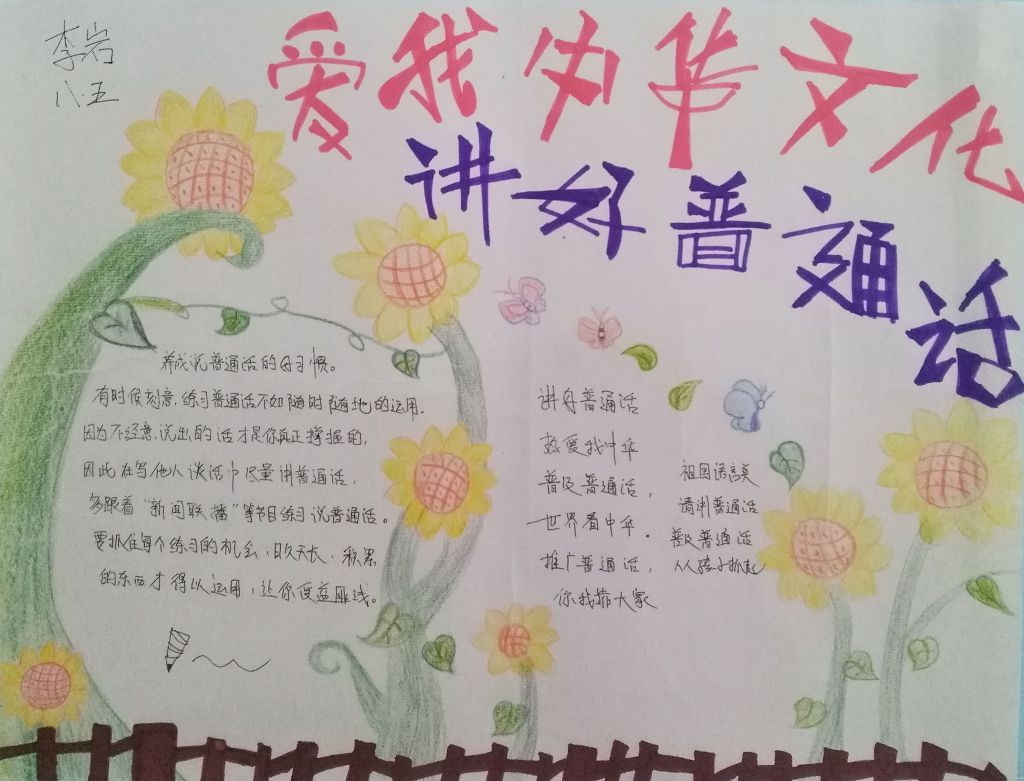 李岩
八.五
爱我中华文化
讲好普通话
养成说普通话的好习惯。
有时候刻意练习普通话不如随时随地的运用.
因为不经意说出的话才是你真正掌握的,
因此在与他人谈话中尽量讲普通话,
多跟着"新闻联播"等节目练习说普通话。
要抓住每个练习的机会,日久天长,积累
的东西才得以运用,让你受益匪浅。
讲好普通话
热爱我中华
普及普通话,
世界看中华。
推广普通话,
你我靠大家
祖国语言美
请讲普通话
普及普通话
从孩子抓起